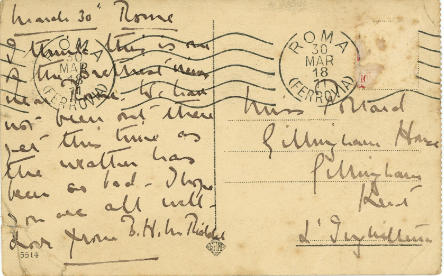 March 30ᵗ Rome
I think this is one
of the prettiest views
near Rome. We have
not been out there
yet this time as
the weather has
been so bad - I hope
you are all well -
Love from B. H. M.
5514
ROMA
30
MAR
(FERROVIA)
ROMA
30
MAR
18
(FERROVIA)
Miss
Gillingham House
Gillingham
Kent
L'Inghilterra